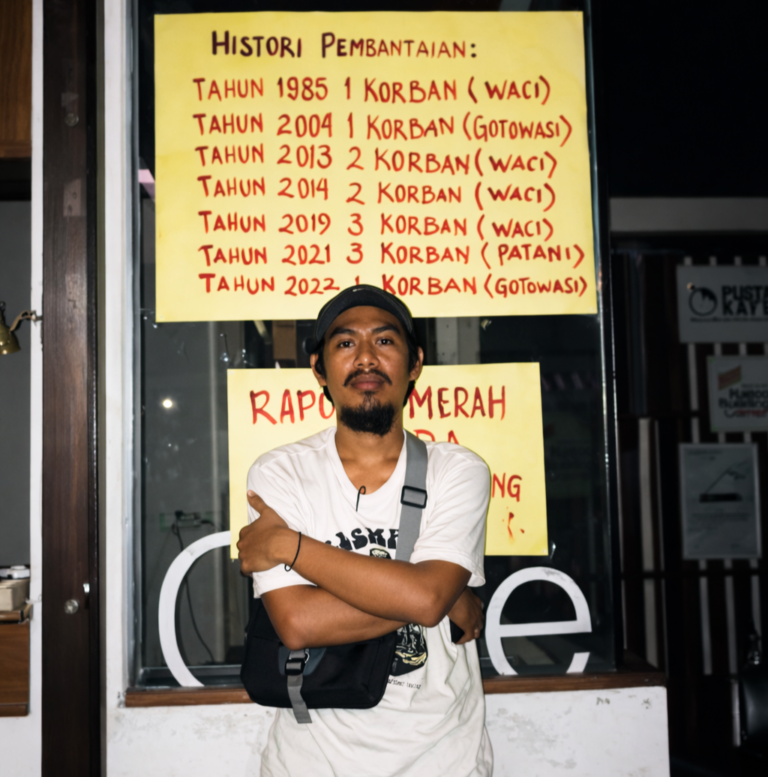 HISTORI PEMBANTAIAN:
TAHUN 1985 1 KORBAN (WACI)
TAHUN 2004 1 KORBAN (GOTOWASI)
TAHUN 2013 2 KORBAN (WACI)
TAHUN 2014 2 KORBAN (WACI)
TAHUN 2019 3 KORBAN (WACI)
TAHUN 2021 3 KORBAN (PATANI)
TAHUN 2022 1 KORBAN (GOTOWASI)
MERAH